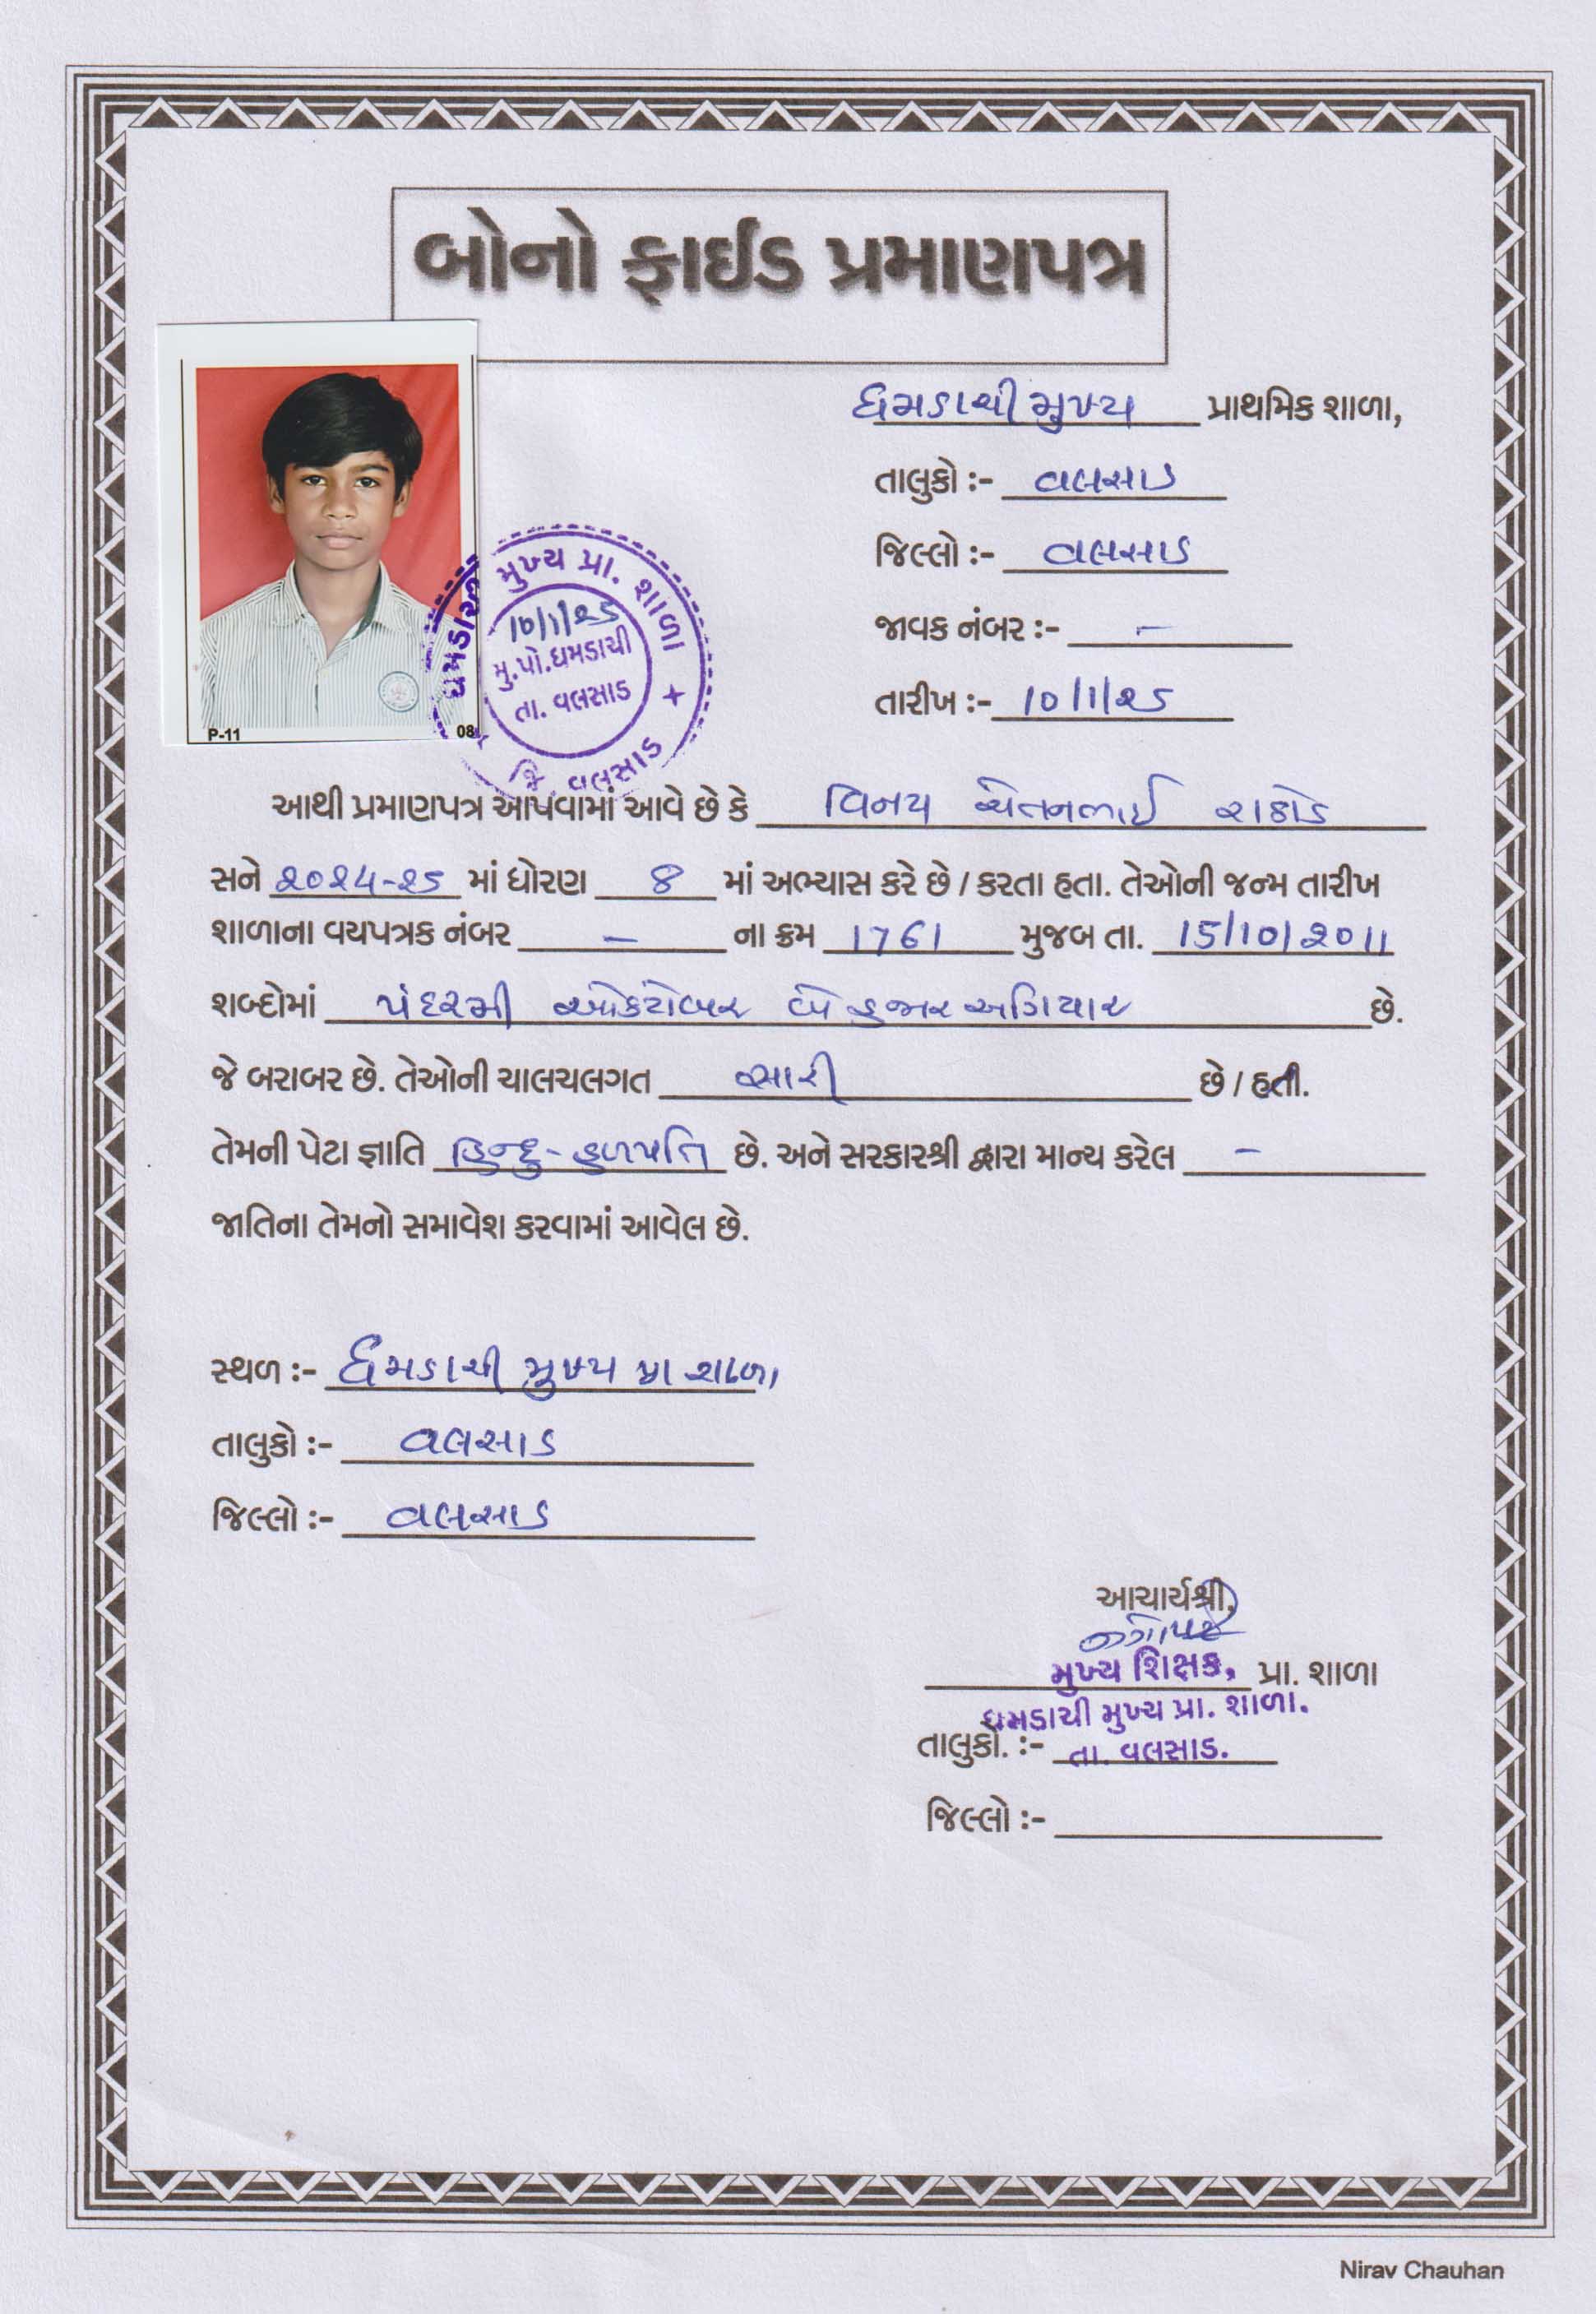 બોનો ફાઈડ પ્રમાણપત્ર
ધમડાચી મુખ્ય પ્રાથમિક શાળા,
તાલુકો :- વલસાડ
જિલ્લો :- વલસાડ
જાવક નંબર :- –
તારીખ :- 10/1/૨૫
P-11 08
ધમડાચી મુખ્ય પ્રા. શાળા
10/1/૨૫
મુ.પો.ધમડાચી
તા. વલસાડ
જિ. વલસાડ
આથી પ્રમાણપત્ર આપવામાં આવે છે કે વિનય ચેતનભાઈ રાઠોડ
સને ૨૦૨૪-૨૫ માં ધોરણ 8 માં અભ્યાસ કરે છે / કરતા હતા. તેઓની જન્મ તારીખ
શાળાના વયપત્રક નંબર – ના ક્રમ 1761 મુજબ તા. 15/10/૨011
શબ્દોમાં પંદરમી ઓકટોબર બે હજાર અગિયાર છે.
જે બરાબર છે. તેઓની ચાલચલગત સારી છે / હતી.
તેમની પેટા જ્ઞાતિ હિન્દુ-હળપતિ છે. અને સરકારશ્રી દ્વારા માન્ય કરેલ –
જાતિના તેમનો સમાવેશ કરવામાં આવેલ છે.
સ્થળ :- ધમડાચી મુખ્ય પ્રા શાળા
તાલુકો :- વલસાડ
જિલ્લો :- વલસાડ
આચાર્યશ્રી,
મુખ્ય શિક્ષક, પ્રા. શાળા
ધમડાચી મુખ્ય પ્રા. શાળા.
તાલુકો. :- તા. વલસાડ.
જિલ્લો :-
Nirav Chauhan